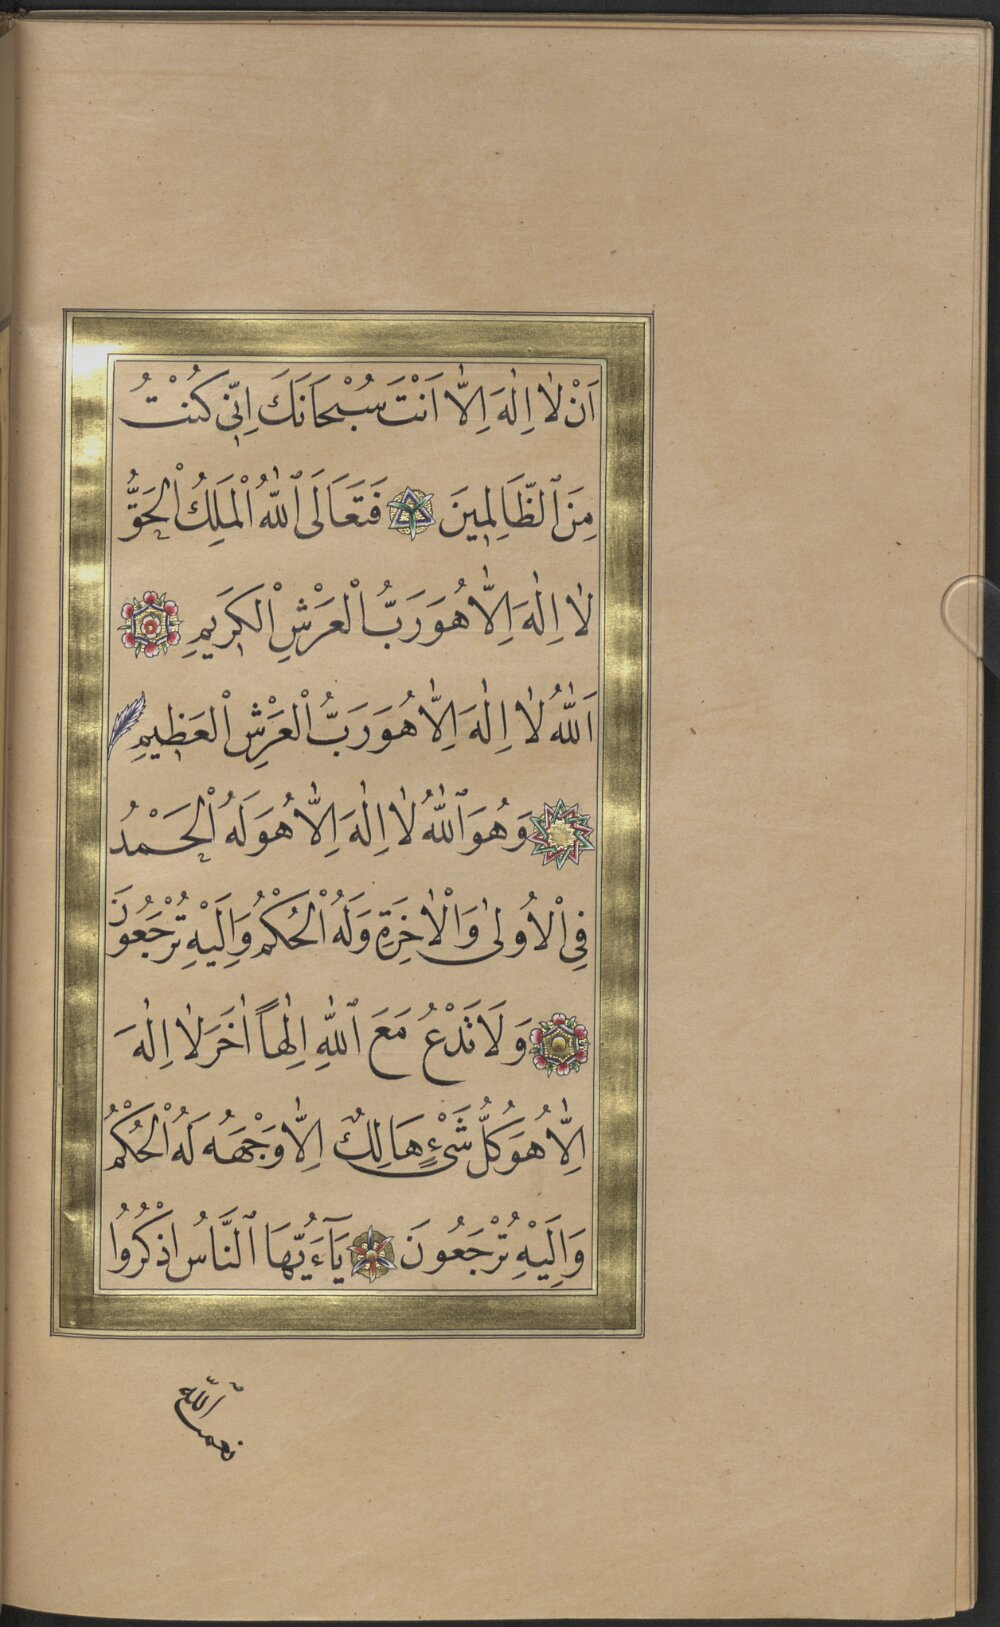 اَنْ لٰا اِلٰهَ اِلّٰا اَنْتَ سُبْحَانَكَ اِنّ۪ى كُنْتُ
مِنَ ٱلظَّالِم۪ينَ فَتَعَالَى ٱللّٰهُ الْمَلِكُ الْحَقُّ
لٰا اِلٰهَ اِلّٰا هُوَ رَبُّ الْعَرْشِ الْكَر۪يمِ
اَللّٰهُ لٰا اِلٰهَ اِلّٰا هُوَ رَبُّ الْعَرْشِ الْعَظ۪يمِ
وَهُوَ ٱللّٰهُ لٰا اِلٰهَ اِلّٰا هُوَ لَهُ الْحَمْدُ
فِى الْاُولٰى وَالْاٰخِرَةِ وَلَهُ الْحُكْمُ وَاِلَيْهِ تُرْجَعُونَ
وَلَا تَدْعُ مَعَ ٱللّٰهِ اِلٰهًا اٰخَرَ لٰا اِلٰهَ
اِلّٰا هُوَ كُلُّ شَىْءٍ هَالِكٌ اِلّٰا وَجْهَهُ لَهُ الْحُكْمُ
وَاِلَيْهِ تُرْجَعُونَ يَآءَيُّهَا ٱلنَّاسُ اذْكُرُوا
نعمت ٱللّه